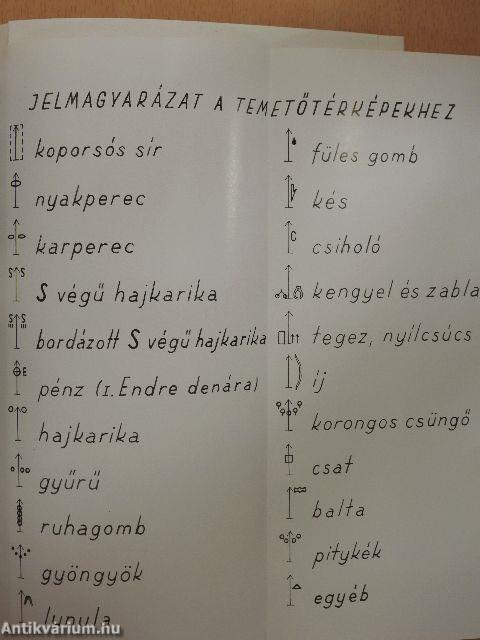 JELMAGYARÁZAT A TEMETŐTÉRKÉPEKHEZ
koporsós sír
nyakperec
karperec
S végű hajkarika
bordázott S végű hajkarika
pénz (I. Endre denára)
hajkarika
gyűrű
ruhagomb
gyöngyök
lunula
füles gomb
kés
csiholó
kengyel és zabla
tegez, nyílcsúcs
íj
korongos csüngő
csat
balta
pitykék
egyéb
Antikvarium.hu